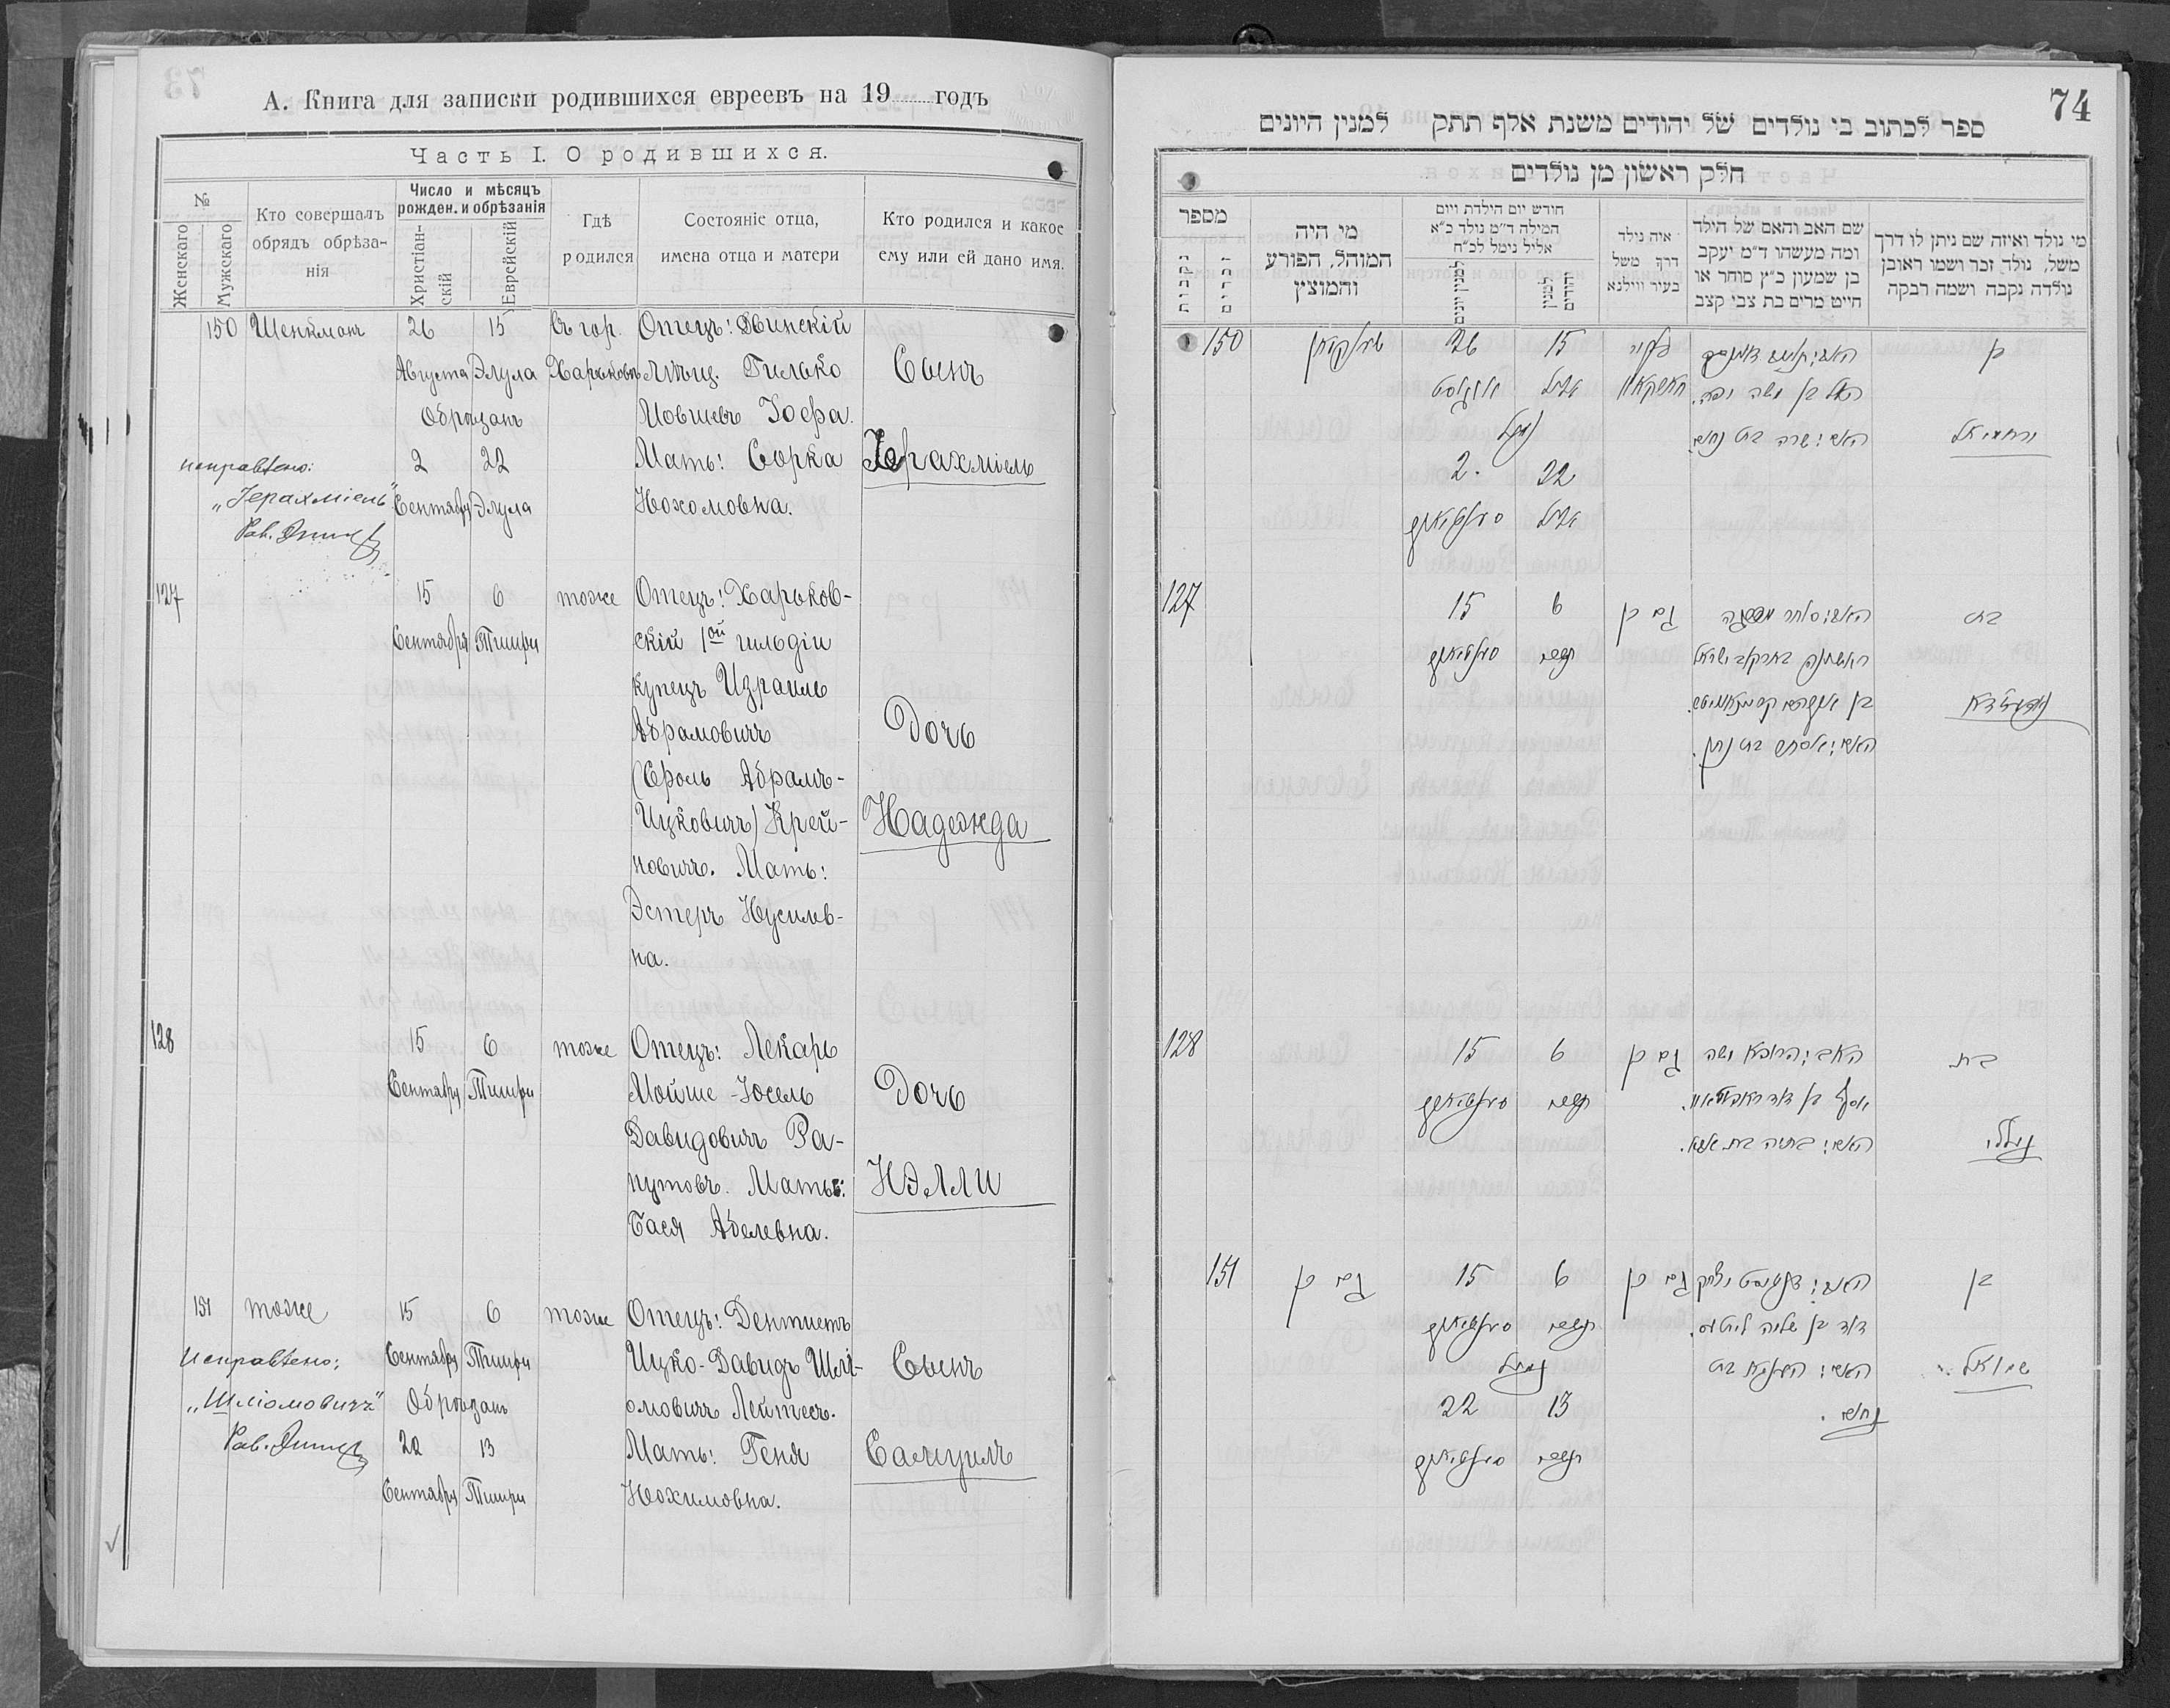 А. Книга для записки родившихся евреевъ на 19 годъ
Часть I. О родившихся.
№
Женскаго
Мужскаго
Кто совершалъ обрядъ обрѣзанія
Число и мѣсяцъ рожден. и обрѣзанія
Христіанскій
Еврейскій
Гдѣ родился
Состояніе отца, имена отца и матери
Кто родился и какое ему или ей дано имя.
150 Шенкманъ 26 15 Въ гор. Отецъ: Двинскій
Августа Элула Харьковѣ Мѣщ. Гилько Сынъ
Обрѣзанъ Мовшевъ Іоффа.
исправлено: 2 22 Мать: Сорка Іерахміель
"Іерахміель" Сентября Элула Нохомовна.
Рав.
127 15 6 тоже Отецъ: Харьков-
Сентября Тишри скій 1ой гильдіи
купецъ Израиль
Абрамовичъ Дочь
(Сроль Абрамъ-
Ицковичъ) Крей- Надежда
новичъ. Мать:
Эстеръ Нусимов-
на.
128 15 6 тоже Отецъ: Лекарь
Сентября Тишри Мойше-Іосель Дочь
Давидовичъ Ра-
путовъ. Мать: Нэлли
Бася Абелевна.
151 тоже 15 6 тоже Отецъ: Дентистъ
Исправлено: Сентября Тишри Ицко-Давидъ Шлі- Сынъ
"Шліомовичъ" Обрѣзанъ омовичъ Лейтесъ.
Рав. 22 13 Мать: Геня Самуилъ
Сентября Тишри Нохимовна.
74
ספר לכתוב בי נולדים של יהודים משנת אלף תתק למנין היונים
חלק ראשון מן נולדים
מספר
נקבות
זכרים
מי היה המוהל, הפורע והמוצץ
חודש יום הילדת ויום המילה ד״מ נולד כ״א אליל נימל לכ״ח
למנין יונים
למנין יהודים
איה נילד דרך משל בעיר ווילנא
שם האב והאם של הילד ומה מעשהו ד״מ יעקב בן שמעון כ״ץ סוחר או חייט מרים בת צבי קצב
מי נולד ואיזה שם ניתן לו דרך משל, נולד זכר ושמו ראובן נולדה נקבה ושמה רבקה
150 שענקמאן 26 15 בן
אויגוסט אלול
נימול האם: שרה בת נחום ירחמיאל
2. 22
סעפטיאבר אלול
127 15 6 גם כן בת
סעפטיאבר תשרי
האם: אסתר בת נתן.
128 15 6 גם כן האב: הרופא משה בת
סעפטיאבר תשרי יוסף בן דוד
האם: בתיה בת אבא. נעללי
151 גם כן 15 6 גם כן האב: דענטיסט יצחק בן
סעפטיאבר תשרי
נימול האם: בת שמואל
22 13 נחום.
סעפטיאבר תשרי